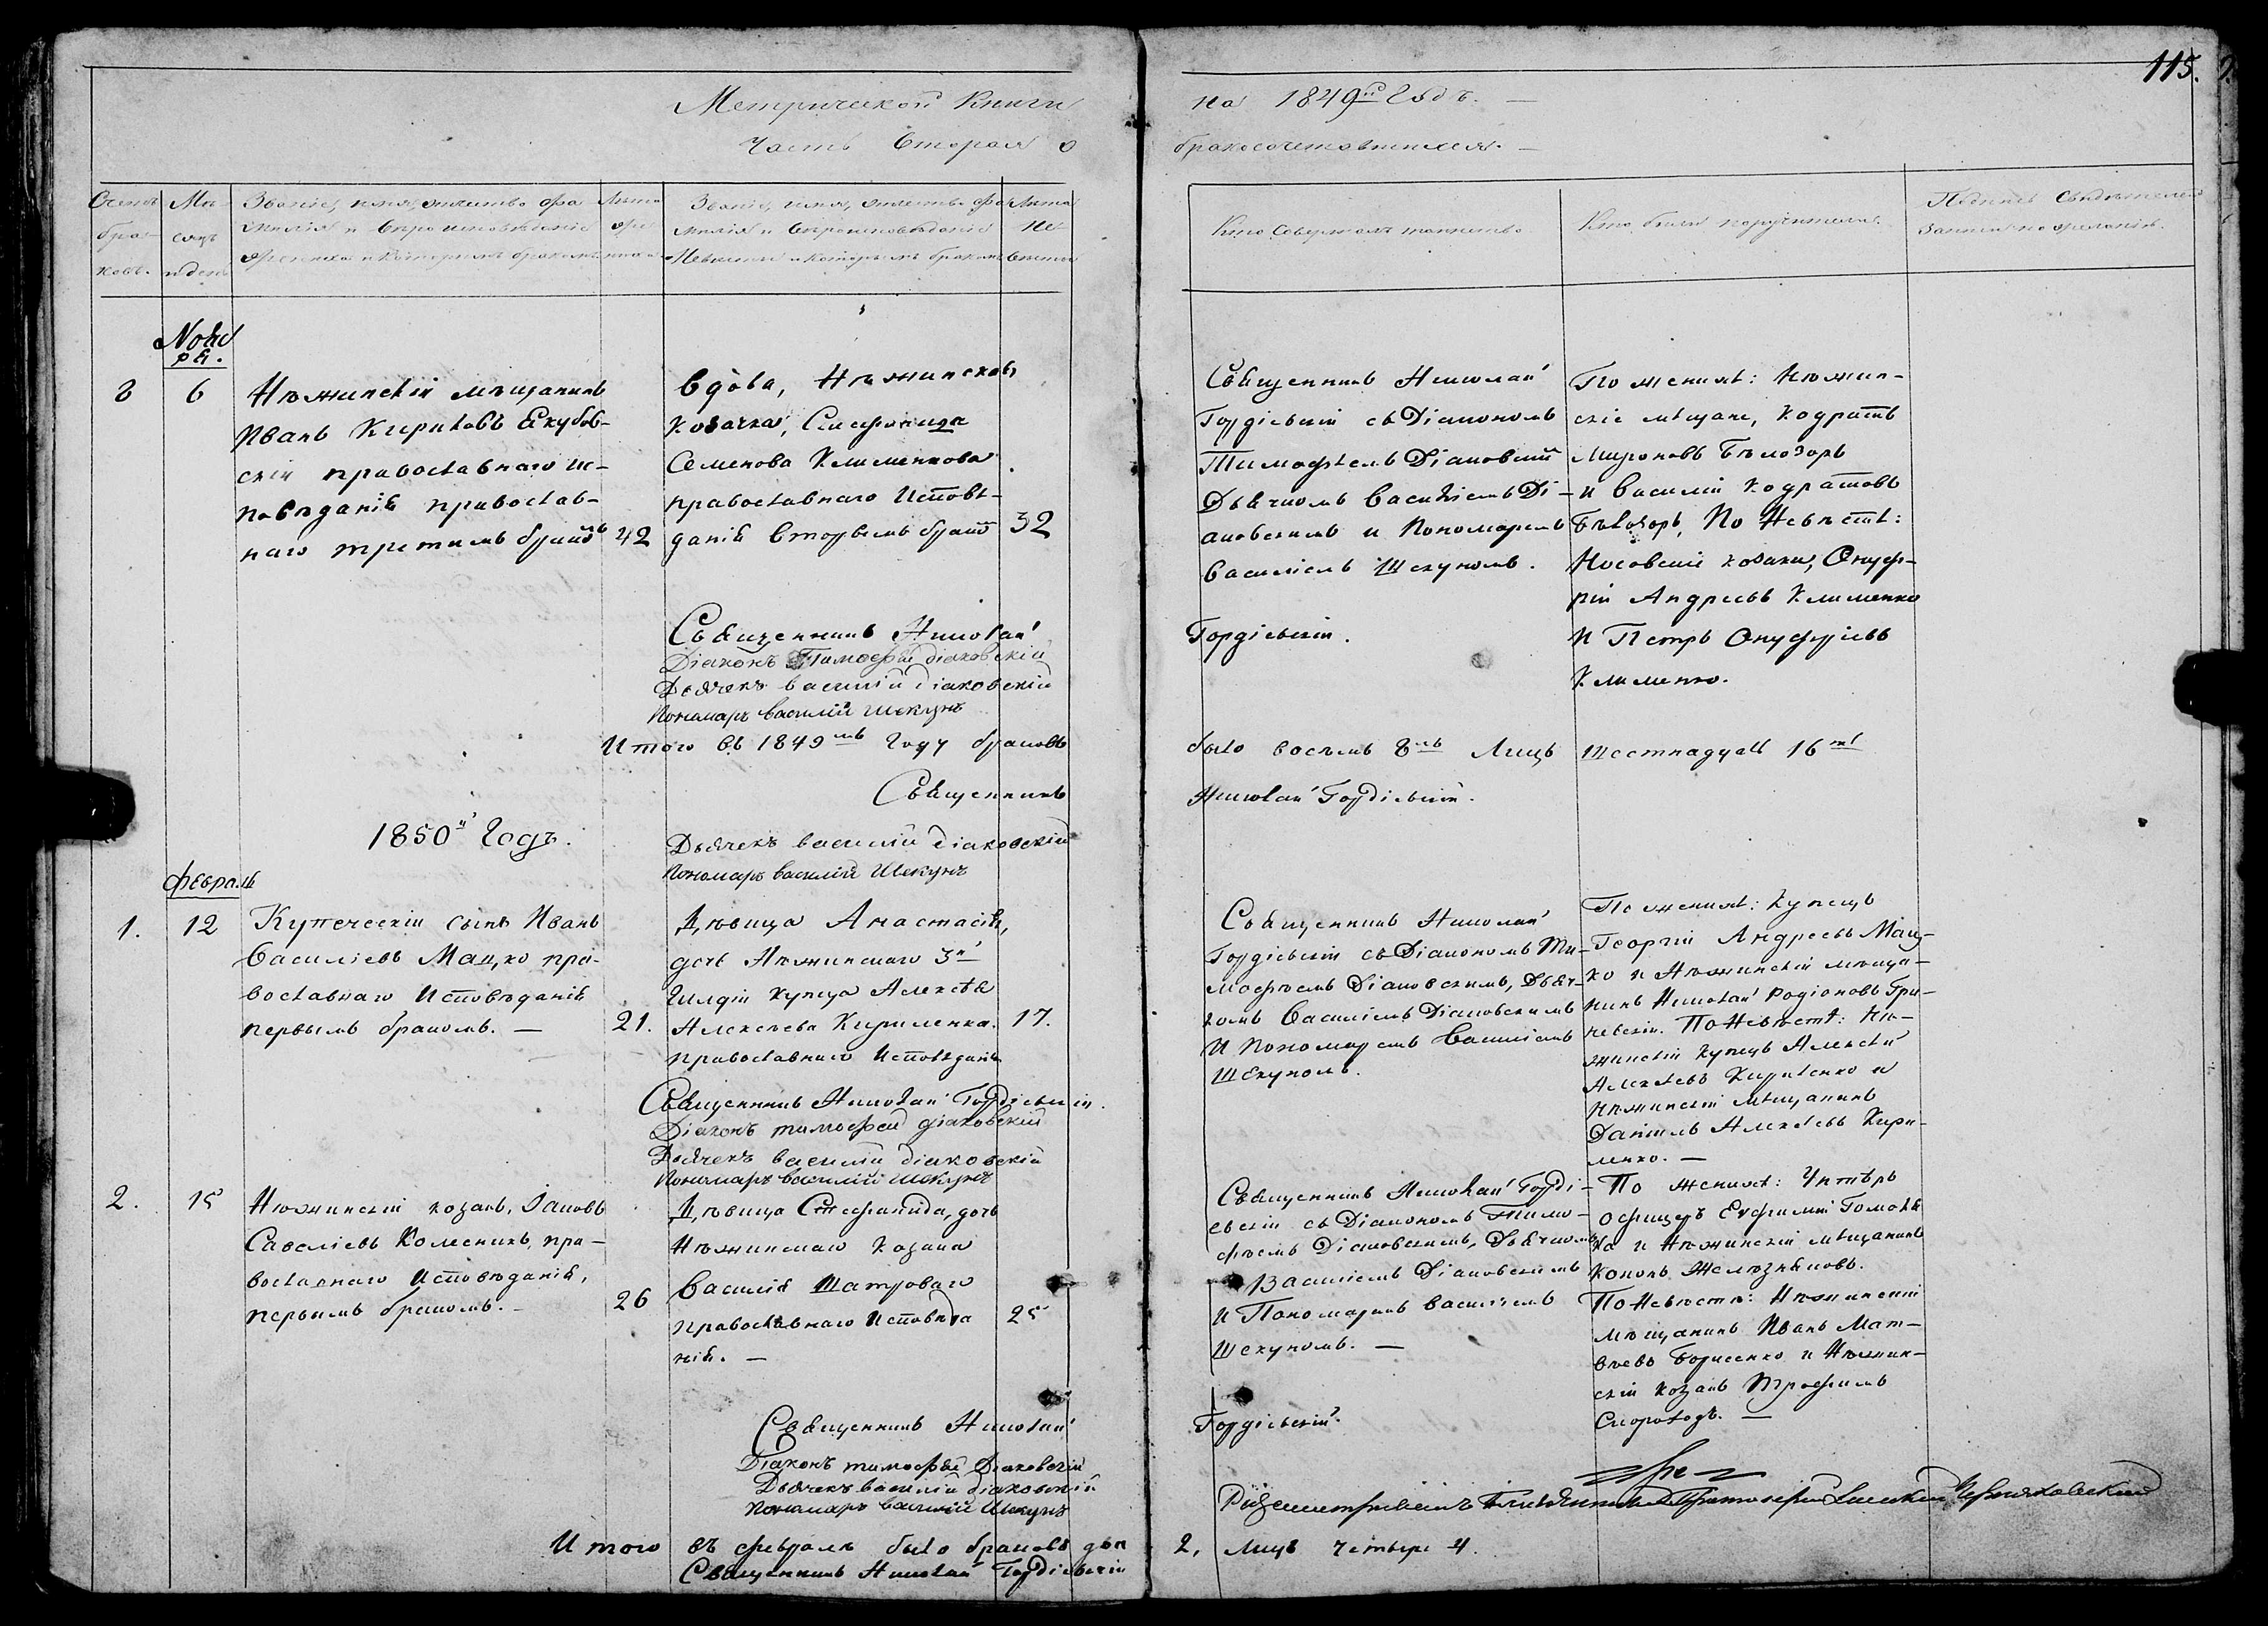 115.
Метрической Книги на 1849й Годъ. —
Часть Вторая о бракосочетавшихся. —
Счетъ бра- ковъ.
Мѣ- сяцъ и день
Званіе, имя, отчество, фа-
милія и вѣроисповѣданіе
жениха и которымъ бракомъ
Лѣта же- ниха
Званіе, имя, отчество, фа-
милія и вѣроисповѣданіе
Невѣсты и которымъ бракомъ
Лѣта Не- вѣсты
Кто совершалъ таинство
Кто были поручители.
Подпись Свидѣтелей
записи по желанію.
Ноя
ря.
8
6
Нѣжинскій мѣщанинъ
Иванъ Кириловъ Якубов-
скій православнаго ис-
повѣданія православ-
наго третимъ бракомъ
42
Вдова, Нѣжинская
козачка, Стефанида
Семенова Клименкова
православнаго Исповѣ-
данія вторымъ бракомъ
32
Священникъ Николай
Гордіевскій съ Діакономъ
Тимофѣемъ Діаковскимъ
Дьячкомъ Василіемъ Ді-
аковскимъ и Пономаремъ
Василіемъ Шекуномъ.
По женихѣ: Нѣжин-
скіе мѣщане, Кодратъ
Мироновъ Бѣлозоръ
и Василій Кодратовъ
Бѣлозоръ, По Невѣстѣ:
Носовскіе козаки, Онуф-
рій Андреевъ Клименко
и Петръ Онуфріевъ
Клименко.
Священникъ Николай Гордіевскій.
Діаконъ Тимофей Діаковскій
Дьячекъ Василій Діаковскій
Пономарь Василій Шекунъ
Итого въ 1849мъ Году браковъ было восемь 8мь Лицъ Шестнадцать 16ть
Священникъ Николай Гордіевскій.
Дьячекъ Василій Діаковскій
Пономарь Василій Шекунъ
1850й Годъ.
Февраль
1.
12
Купеческій сынъ Иванъ
Василіевъ Мацко пра-
вославнаго Исповѣданія
первымъ бракомъ. —
21.
Дѣвица Анастасія,
дочь Нѣжинскаго 3й
Гилдіи купца Алексѣя
Алексѣева Кириленка.
православнаго Исповѣданія
17.
Священникъ Николай
Гордіевскій съ Діакономъ Ти-
мофѣемъ Діаковскимъ, Дьяч-
комъ Василіемъ Діаковскимъ
И Пономаремъ Василіемъ
Шекуномъ.
По женихѣ: купецъ
Георгій Андреевъ Мац-
ко и Нѣжинскій мѣща-
нинъ Николай Родіоновъ Гри-
невскій. По Невѣстѣ: Нѣ-
жинскій купецъ Алексѣй
Алексѣевъ Кириленко и
Нѣжинскій мѣщанинъ
Даніилъ Алексѣевъ Кири-
ленко. —
Священникъ Николай Гордіевскій.
Діаконъ Тимофей Діаковскій
Дьячекъ Василій Діаковскій
Пономарь Василій Шекунъ
2.
15
Нѣжинскій козакъ, Іаковъ
Савеліевъ Колесникъ, пра-
вославнаго Исповѣданія,
первымъ бракомъ. —
26
Дѣвица Стефанида, дочь
Нѣжинскаго козака
Василія Шатроваго
православнаго Исповѣда
нія. —
25
Священникъ Николай Горді-
евскій съ Діакономъ Тимо-
фѣемъ Діаковскимъ, Дьячкомъ
Василіемъ Діаковскимъ
И Пономаремъ Василіемъ
Шекуномъ. —
По женихѣ: Унтеръ
офицеръ Евфимій
и Нѣжинскій мѣщанинъ
Кононъ Желѣзняковъ.
По Невѣстѣ: Нѣжинскій
мѣщанинъ Иванъ Мат-
вѣевъ Борисенко и Нѣжин-
скій козакъ Трофимъ
Скороходъ. —
Священникъ Николай Гордіевскій.
Діаконъ Тимофей Діаковскій
Дьячекъ Василій Діаковскій
Пономарь Василій Шекунъ
Итого въ февралѣ было браковъ два 2, лицъ четыре 4.
Священникъ Николай Гордіевскій